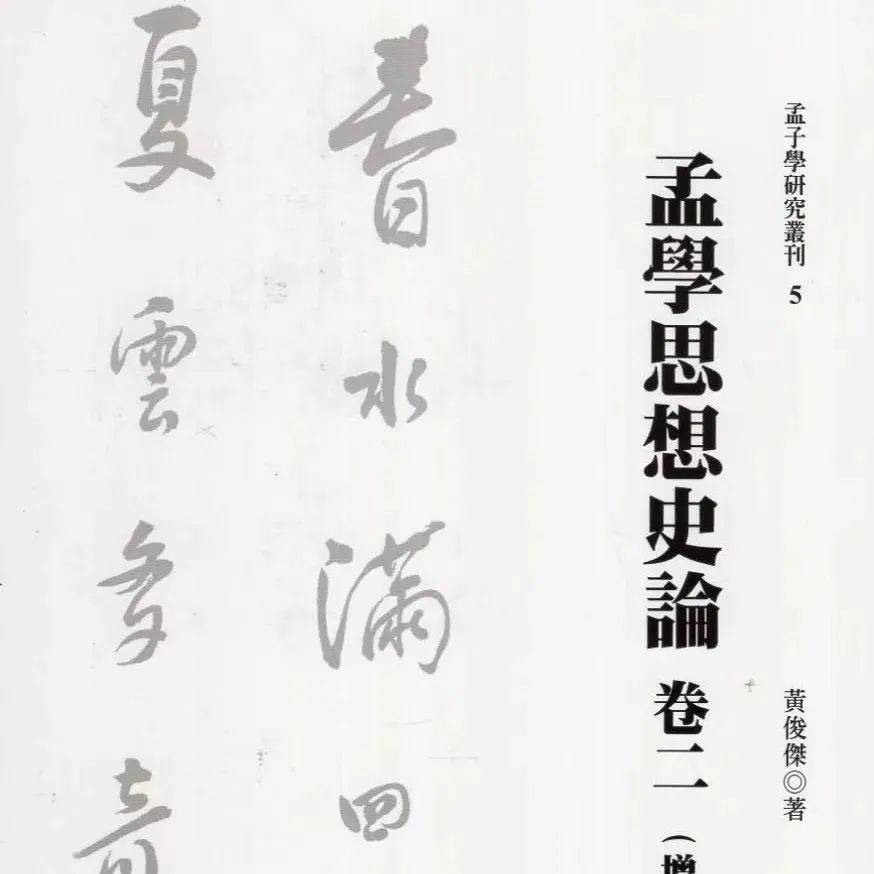 孟子學研究叢刊 5
黃俊傑◎著
孟學思想史論 卷二（增
春水滿四
夏雲多奇